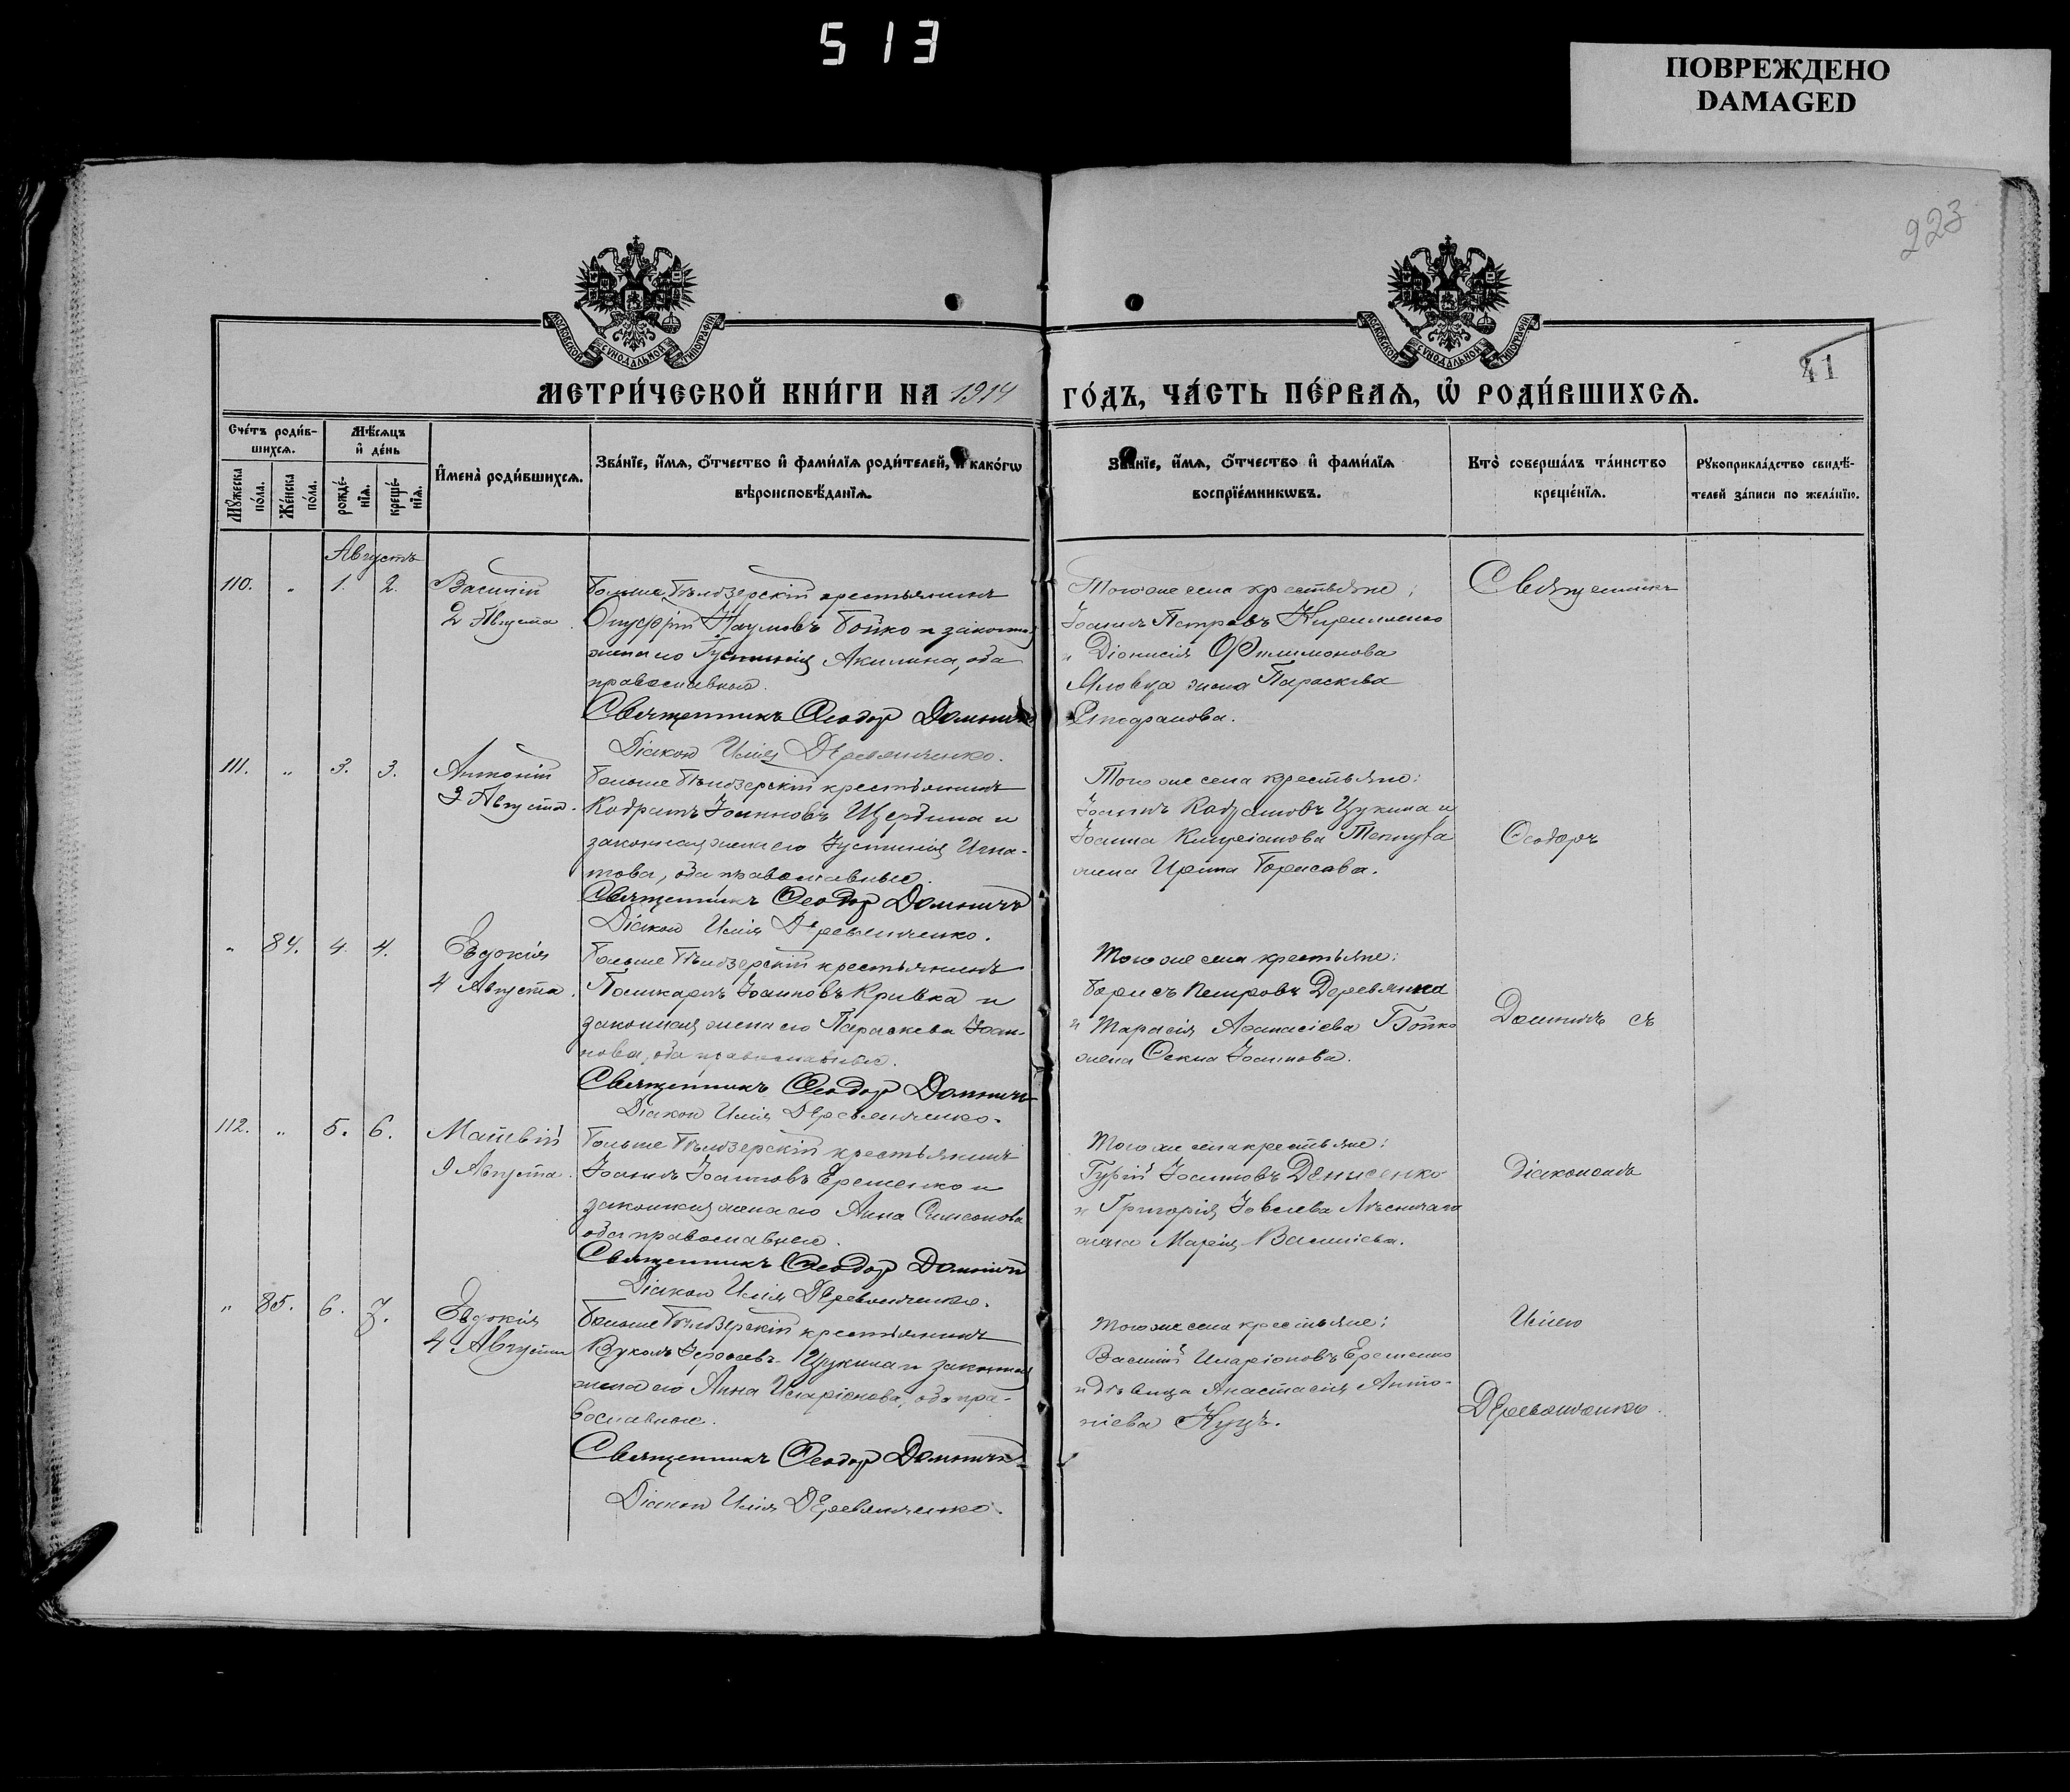 513
ПОВРЕЖДЕНО
DAMAGED
223
41
МОСКОВСКОЙ СѴНОДАЛЬНОЙ ТИПОГРАФІИ
МОСКОВСКОЙ СѴНОДАЛЬНОЙ ТИПОГРАФІИ
МЕТРИ́ЧЕСКОЙ КНИ́ГИ НА 1914 ГО́ДЪ, ЧА́СТЬ ПЕ́РВАѦ, Ѡ҆ РОДИ́ВШИХСѦ.
Сче́тъ роди́в-
шихсѧ.
Мꙋ́жеска по́ла.
Же́нска по́ла.
Мѣ́сѧцъ
и҆ де́нь
рожде́-
нїѧ.
креще́-
нїѧ.
И҆мена̀ роди́вшихсѧ.
Зва́нїе, и҆́мѧ, ѻ҆́тчество и҆ фами́лїѧ роди́телей, и҆ како́гѡ
вѣроисповѣ́данїѧ.
Зва́нїе, и҆́мѧ, ѻ҆́тчество и҆ фами́лїѧ
воспрїе́мникѡвъ.
Кто̀ соверша́лъ та́инство
креще́нїѧ.
Рꙋкоприкла́дство свидѣ́-
телей за́писи по жела́нїю.
Августъ
110. „ 1. 2.
Василій
2 Августа.
Больше Бѣлозерскій крестьянинъ
Онуфрій Наумовъ Бойко и законная
жена его Акилина, оба
православные.
Священникъ Ѳеодор Домнич
Діакон Илія Деревянченко.
Того же села крестьяне:
Іоаннъ Петровъ Кириленко
и Діонисія Филимонова
Яловца жена Параскева
111. „ 3. 3.
Антоній
3 Августа.
Больше Бѣлозерскій крестьянинъ
Кодратъ Іоанновъ Щербина и
законная жена его Іустинія Игна-
това, оба православные.
Священникъ Ѳеодор Домничъ
Діакон Илія Деревянченко.
Того же села крестьяне:
Іоаннъ Кодратовъ Цукила и
Іоанна Кипріанова
жена Ирина Борисова.
„ 84. 4. 4.
Евдокія
4 Августа.
Больше Бѣлозерскій крестьянинъ
Поликарпъ Іоанновъ Кривка и
законная жена его Параскева Іоан-
нова, оба православные.
Священникъ Ѳеодор Домнич
Діакон Илія Деревянченко.
Того же села крестьяне:
Борисъ Петровъ Деревянка
и Тарасія Аѳанасіева Бойко
жена Ѳекла Іоаннова.
112. „ 5. 6.
Матвій
9 Августа.
Больше Бѣлозерскій крестьянинъ
Іоаннъ Іоанновъ Еременко и
законная жена его Анна Симеонова
оба православные.
Священникъ Ѳеодор Домнич
Діакон Илія Деревянченко.
Того же села крестьяне:
Гурій Іоанновъ Денисенко
и Григорія Іовлева Лѣсничаго
жена Марія Василіева.
„ 85. 6. 7.
Евдокія
4 Августа
Больше Бѣлозерскій крестьянинъ
Вуколъ Цукила и законная
жена его Анна Иларіонова, оба пра-
вославные.
Священникъ Ѳеодор Домничъ
Діакон Илія Деревянченко.
Того же села крестьяне:
Василій Иларіоновъ Еременко
и дѣвица Анастасія Анто-
ніева Куцъ.
Священникъ
Ѳеодоръ
Домничъ съ
Діакономъ
Иліею
Деревянченко.